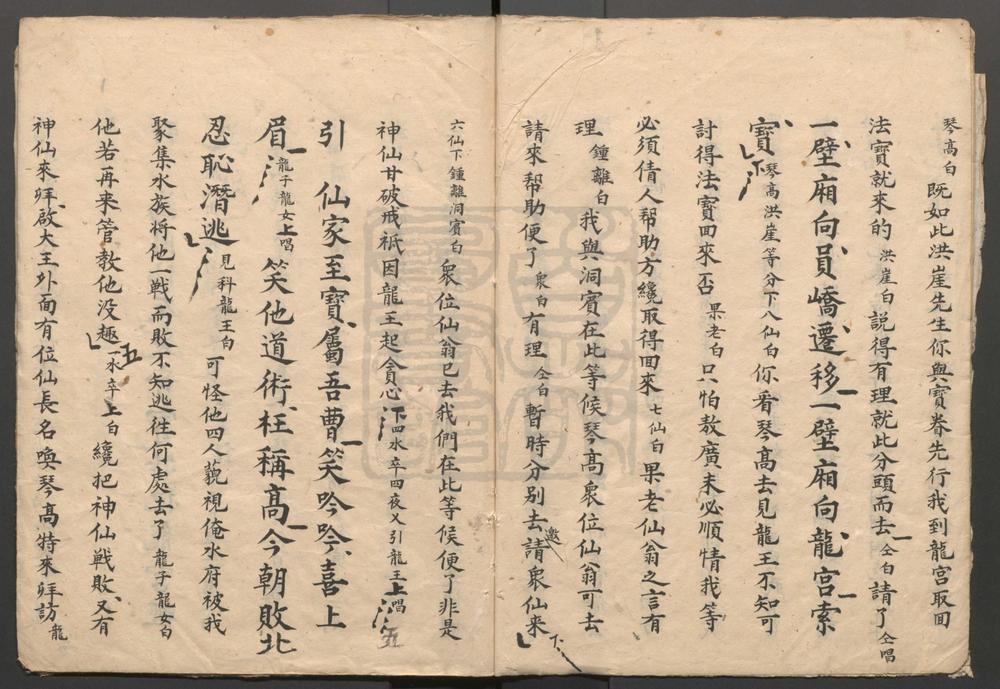 琴高白 既如此洪崖先生你與寶眷先行我到龍宮取回
法寶就來的 洪崖白 説得有理就此分頭而去 仝白 請了 仝唱
一壁廂向員嶠遷移一壁廂向龍宮索
寶 琴高洪崖等分下八仙白 你看琴高去見龍王不知可
討得法寶回來否 果老白 只怕敖廣未必順情我等
必須倩人帮助方纔取得回來 七仙白 果老仙翁之言有
理 鍾離白 我與洞賓在此等候琴高衆位仙翁可去
請來帮助便了 衆白 有理 仝白 暫時分别去邀請衆仙来 下
六仙下鍾離洞賓白 衆位仙翁已去我們在此等候便了非是
神仙甘破戒祇因龍王起貪心 下 四水卒四夜乂引龍王上唱 五
引 仙家至寶屬吾曹笑吟吟喜上
眉 龍子龍女上唱 笑他道術枉稱高今朝敗北
忍恥潛逃 見科龍王白 可怪他四人藐視俺水府被我
聚集水族将他一戰而敗不知逃往何處去了 龍子龍女白
他若再来管教他没趣 五 一水卒上白 纔把神仙戰敗又有
神仙來拜啟大王外面有位仙長名喚琴高特來拜訪 龍